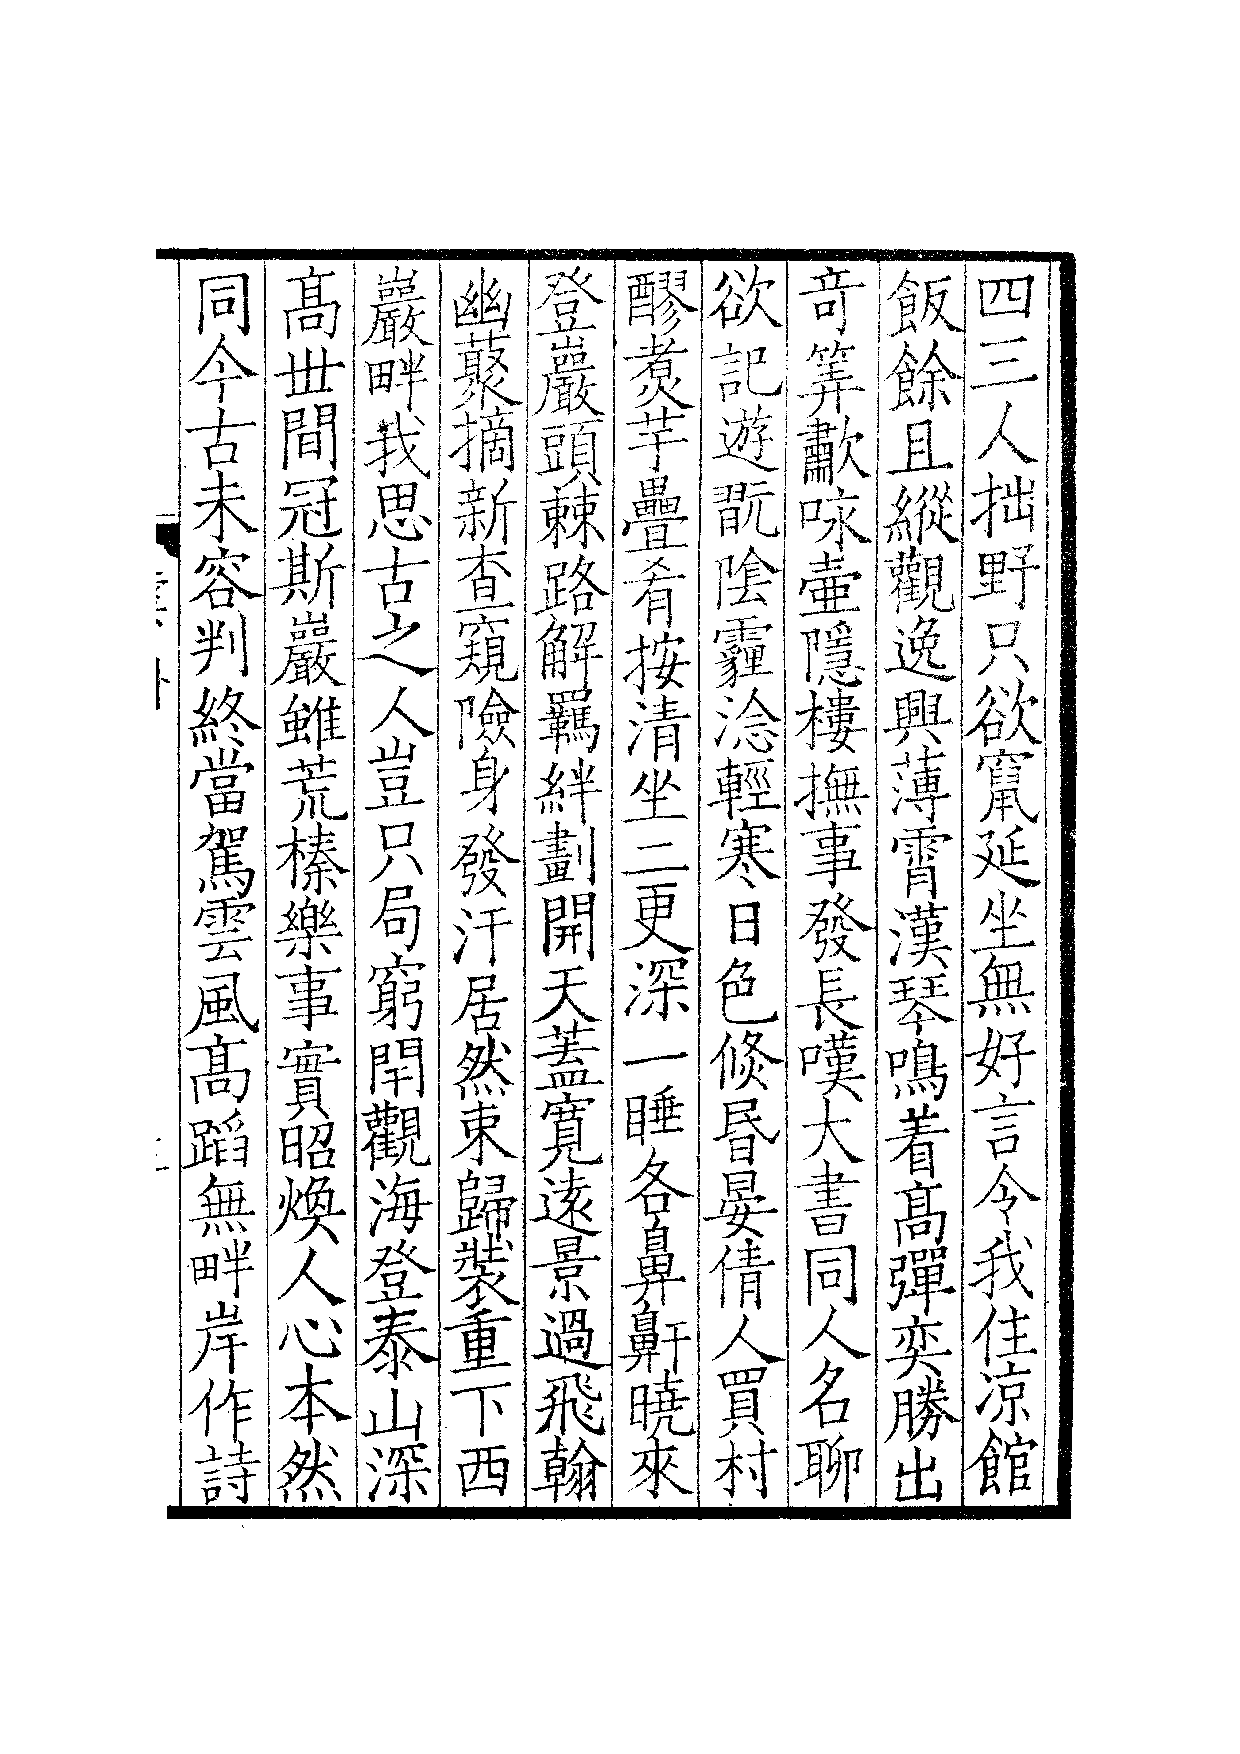 四三人拙野只欲竄延坐無好言令我住涼館
飯餘且縱觀逸興薄霄漢琴鳴着髙彈奕勝出
竒筭歗咏壷隱樓撫事發長嘆大書同人名聊
欲記遊翫陰霾淰輕寒日色倐昏晏倩人買村
醪煑芋疊肴按清坐二更深一睡各鼻鼾曉來
登巖頭棘路解羈絆劃開天蓋寛逺景過飛翰
幽藂摘新查窺險身發汗居然束歸裝重下西
巖畔我思古之人豈只局窮閈觀海登泰山深
髙世間冠斯巖雖荒榛樂事實昭煥人心本然
同今古未容判終當駕雲風髙蹈無畔岸作詩